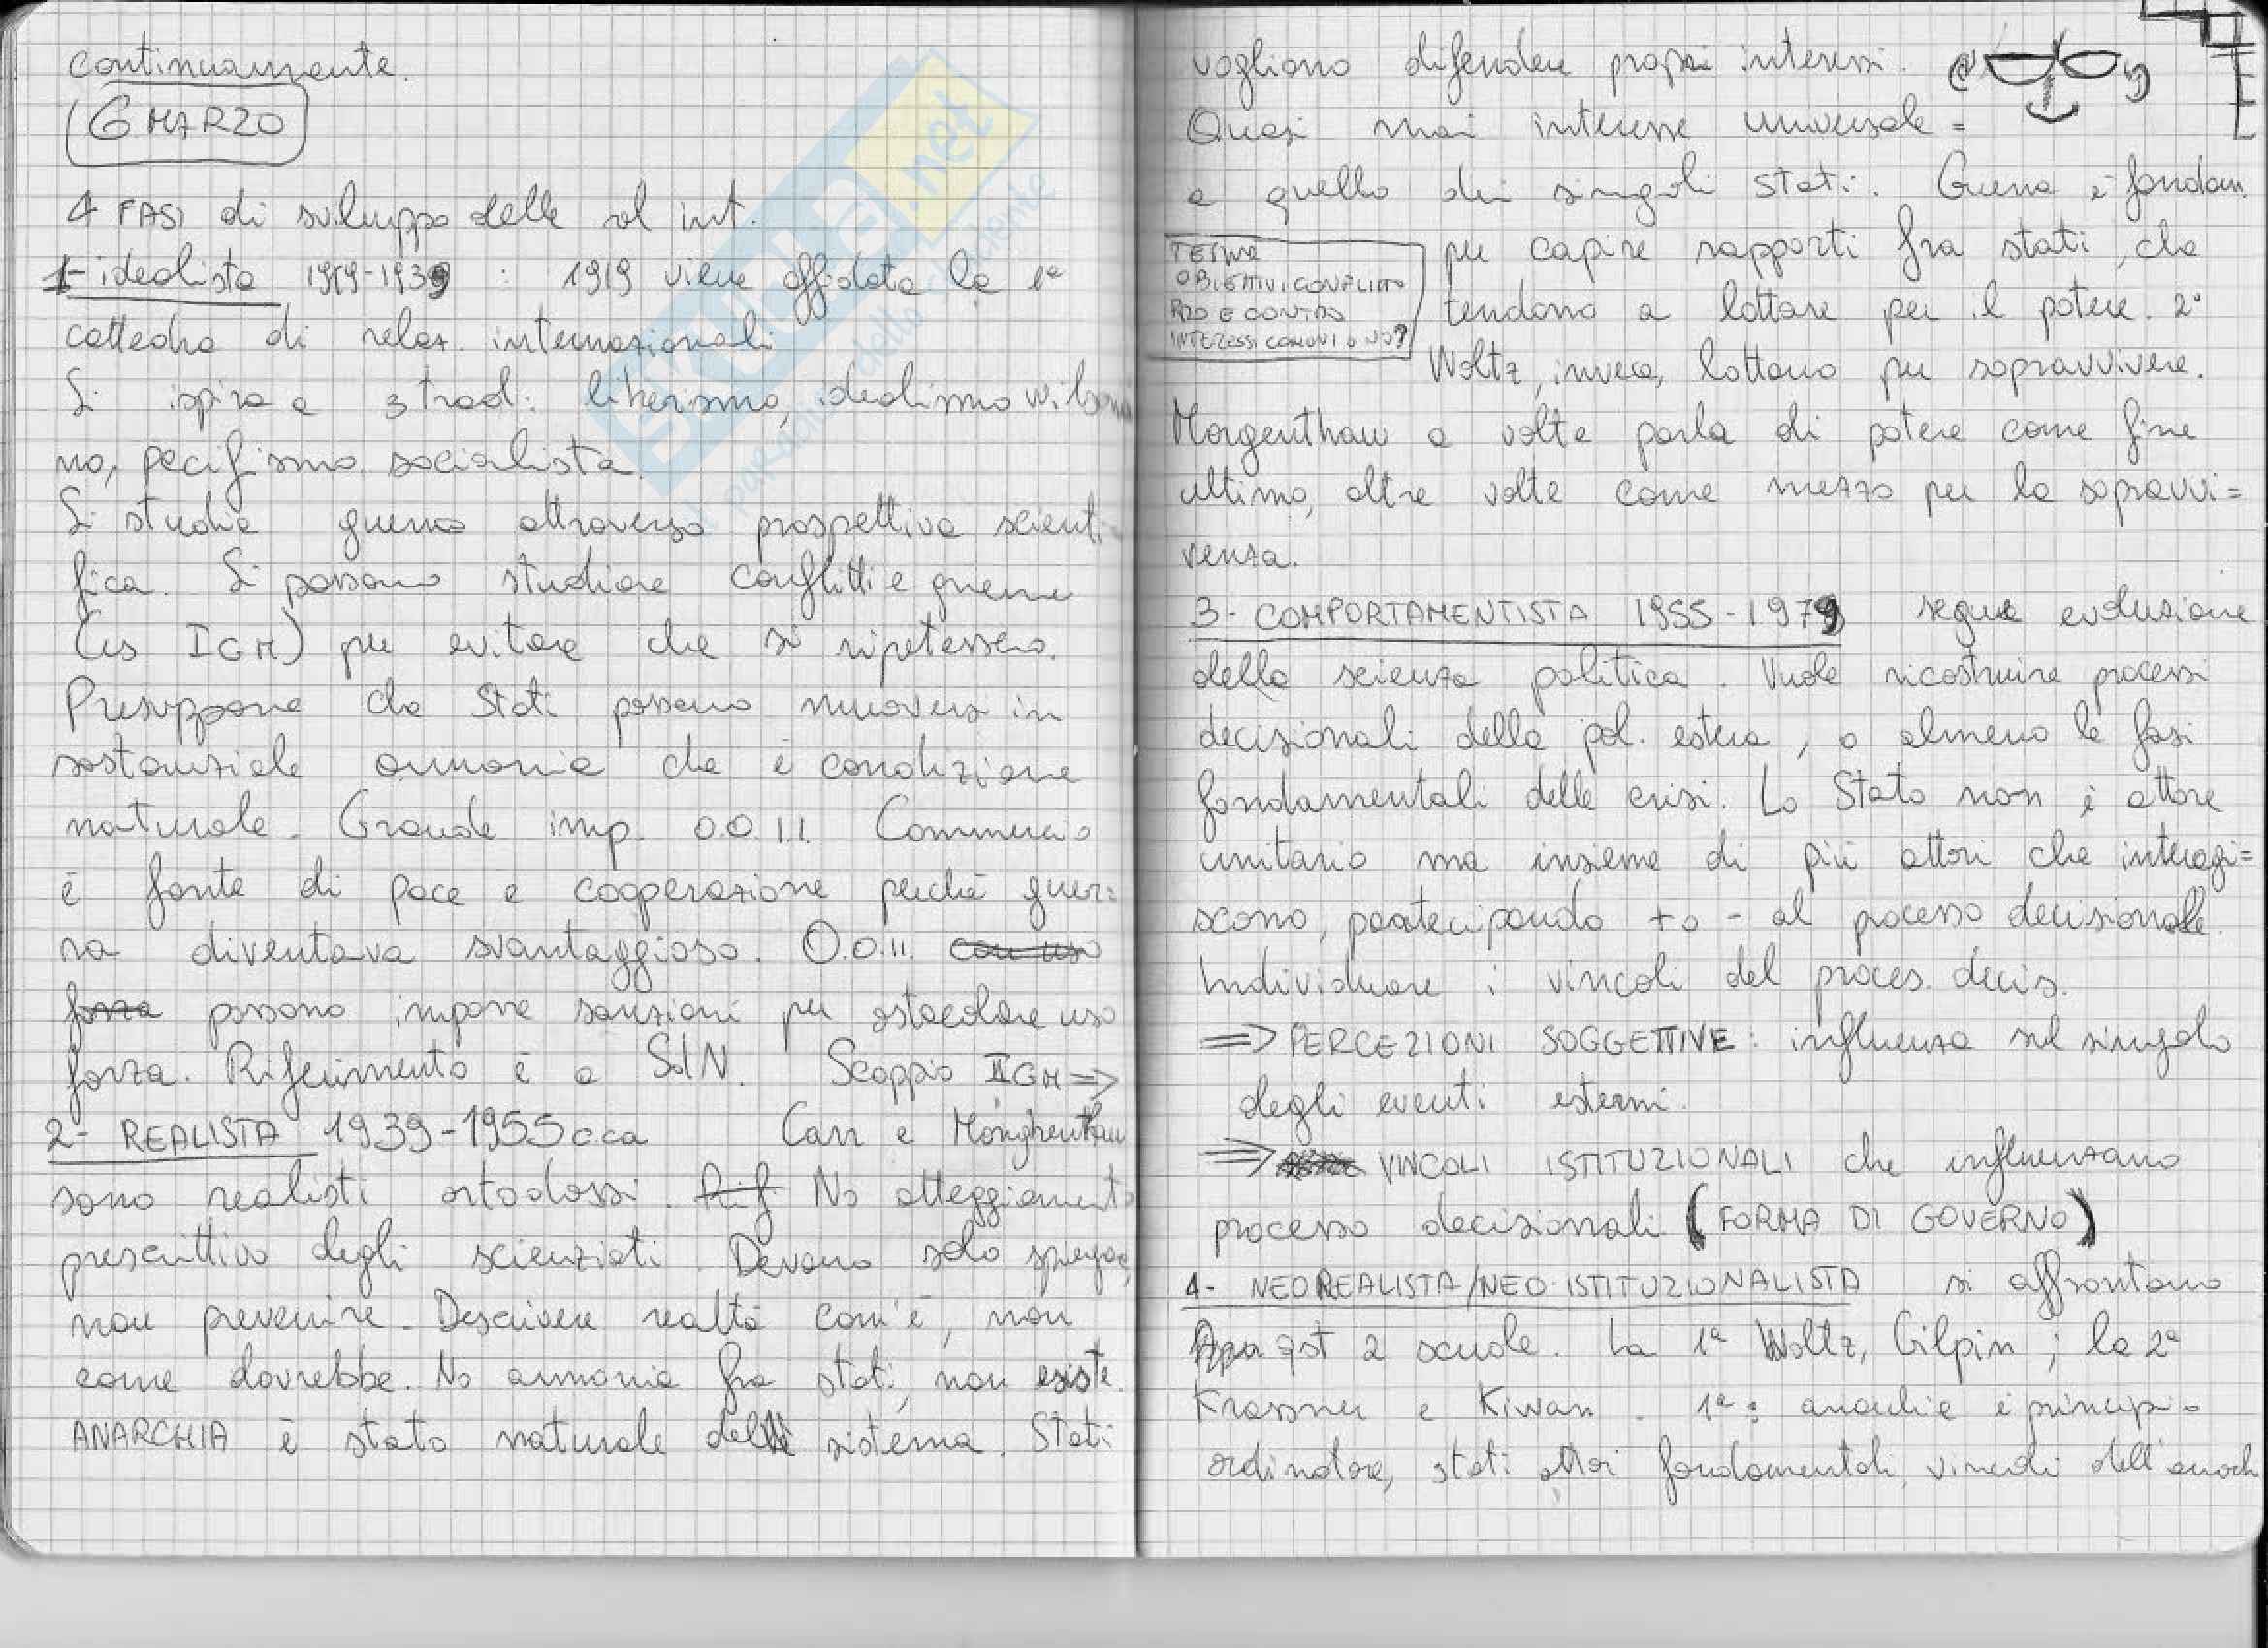 continuamente.
6 MARZO
4 FASI di sviluppo delle rel int.
1- idealista 1919-1939 : 1919 viene affidata la 1ª
cattedra di relaz. internazionali
Si ispira a 3 trad: liberismo, idealismo wilsonia
no, pacifismo socialista.
Si studia guerra attraverso prospettiva scienti
fica. Si possono studiare conflitti e guerre
(es IGM) per evitare che si ripetessero.
Presuppone che Stati possano muoversi in
sostanziale armonia che è condizione
naturale. Grande imp. O.O.I.I. Commercio
è fonte di pace e cooperazione perché guer=
ra diventava svantaggiosa. O.O.II. con uso
forza possono imporre sanzioni per ostacolare uso
forza. Riferimento è a SdN. Scoppio IIGM =>
2- REALISTA 1939-1955 cca Carr e Morghentau
sono realisti ortodossi. Rif No atteggiamento
prescrittivo degli scienziati. Devono solo spiegare,
non prevenire. Descrivere realtà com'è, non
come dovrebbe. No armonia fra stati, non esiste.
ANARCHIA è stato naturale del sistema. Stati
vogliono difendere propri interessi.
Quasi mai interesse universale =
a quello dei singoli stati. Guerra è fondam.
per capire rapporti fra stati, che
tendono a lottare per il potere. 2°
Waltz, invece, lottano per sopravvivere.
TESINA
OBIETTIVI CONFLITTO
PRO E CONTRO
INTERESSI COMUNI O NO?
Morgenthau a volte parla di potere come fine
ultimo, altre volte come mezzo per la sopravvi=
venza.
3- COMPORTAMENTISTA 1955-1979 segue evoluzione
della scienza politica. Vuole ricostruire processi
decisionali della pol. estera, o almeno le fasi
fondamentali delle crisi. Lo Stato non è attore
unitario ma insieme di più attori che interagi=
scono, partecipando + o - al processo decisionale.
Individuare i vincoli del proces. decis.
=> PERCEZIONI SOGGETTIVE: influenza sul singolo
degli eventi esterni.
=> VINCOLI ISTITUZIONALI che influenzano
processo decisionali (FORMA DI GOVERNO)
4- NEOREALISTA/NEO-ISTITUZIONALISTA si affrontano
qst 2 scuole. La 1ª Waltz, Gilpin; la 2ª
Krasner e Kiwan. 1ª: anarchia è principio
ordinatore, stati attori fondamentali, vincoli dell'anarch